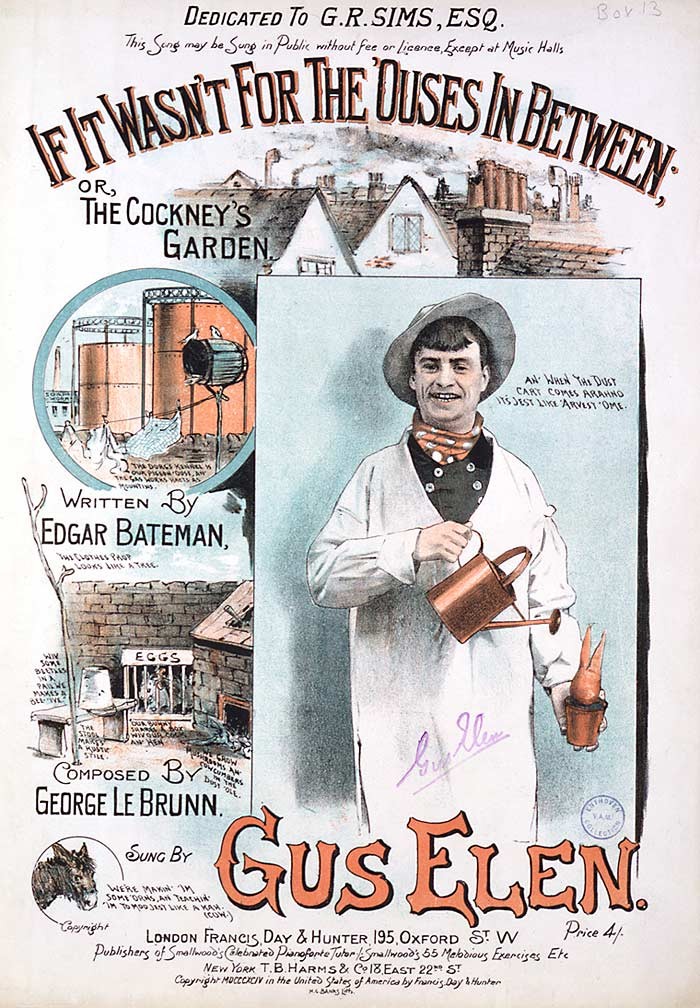 DEDICATED TO G.R. SIMS, ESQ.
Box 13
This Song may be Sung in Public without fee or Licence, Except at Music Halls
IF IT WASN'T FOR THE 'OUSES IN BETWEEN;
OR,
THE COCKNEY'S
GARDEN.
AN' WHEN THE DUST
CART COMES ARAHND
IT'S JEST LIKE 'ARVEST 'OME.
THE DORG'S KENNEL IS
OUR PIGEON-'OUSE, AN'
THE GAS WORKS HACTS AS
MOUNTINS.
WRITTEN BY
EDGAR BATEMAN,
THE CLOTHES PROP
LOOKS LIKE A TREE.
EGGS
WIV
SOME
BEETLES
IN A
PAIL WE
MAKES A
BEE-'IVE.
THE
STOOL
MAKES A
RUSTIC
STILE.
OUR BUNNY
SHARES A BOX
WIV OUR COCK
AN' HEN
GROW
MUSHROOMS AN'
COWCUMBERS
IN THE
DUST 'OLE.
COMPOSED BY
GEORGE LE BRUNN.
Gus Elen
ENTHOVEN
V.&A.M.
COLLECTION
SUNG BY
GUS ELEN.
WE'RE MAKIN' 'IM
SOME 'ORNS, AN' TEACHIN'
'IM TO MOO JEST LIKE A KAH.
(COW.)
Copyright
LONDON FRANCIS, DAY & HUNTER, 195, OXFORD ST. W
Price 4/-
Publishers of Smallwood's Celebrated Pianoforte Tutor / Smallwood's 55 Melodious Exercises Etc
NEW YORK T.B. HARMS & Co 18, EAST 22ND ST.
Copyright MDCCCXCIV in the United States of America by Francis, Day & Hunter
H.G. BANKS Lith.